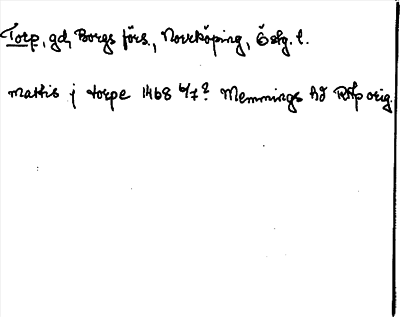 Torp, gd, Borgs förs., Norrköping, Östg. l.
mattis j torpe 1468 6/7? Memmings hd RAp orig.